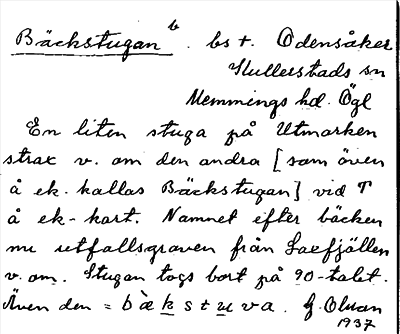 Bäckstugan b . bst. Odensåker
Skullerstads sn
Memmings hd. Ögl
En liten stuga på Utmarken
strax v. om den andra [som även
å ek. kallas Bäckstugan] vid T
å ek-kart. Namnet efter bäcken
nu utfallsgraven från
v. om. Stugan togs bort på 90-talet.
Även den = b ä k s t u v a. G. Olson
1937